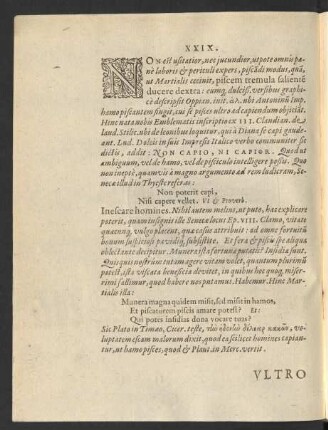 XXIX.
NON est usitatior, nec jucundior, ut pote omniũ pæ-
nè laboris & periculi expers, piscãdi modus, quã,
ut Martialis cecinit, piscem tremula salientẽ
ducere dextra: eumq́; dulciss. versibus graphi-
cè descripsit Oppian. init. ubi Antoninũ Imp.
homo piscantem fingit, sus se pisces ultro ad capiendum objicere.
Hinc nata nobis Emblematis inscriptio ex III. Claudian. de
land. Stilic. ubi de leonibus loquitur, qui à Diana se capi gaude-
ant. Lud. Dolcii in suis Impresis Italico verbo communiter se
dictis, addit: NON CAPIO, NI CAPIOR. Quod ut
ambiguum, vel de hamo, vel de pisciculo intelligere possis. Quod
non inepti, quamvis à magno argumento ad rem ludicram, Se-
neca illud in Thyeste referas:
Non poterit capi,
Nisi capere vellet. Vt & Proverb.
Inescare homines. Nihil autem melius, ut puto, hac explicare
poterit, quam insignis ille Seneca locus Ep. VIII. Clamo, vitate
quæcunq́; vulgo placent, quæ casus attribuit: ad omne fortuitũ
bonum suspiciosi pavidiq́; subsistite. Et fera & piscis spe aliqua
oblectante decipitur. Munera ista fortunæ putatis? Insidiæ sunt.
Quisquis nostrũm tutam agere vitam volet, quantum plurimũ
potest, ista viscata beneficia devitet, in quibus hoc quoq́; miser-
rimi fallimur, quod habere nos putamus. Habemur. Hinc Mar-
tialis illa:
Munera magna quidem misit, sed misit in hamos,
Et piscatorem piscis amare potest? Et:
Qui potes insidias dona vocare tuas?
Sic Plato in Timæo, Cicer. teste, vo-
luptatem escam malorum dixit, quod ea scilicet homines captan-
tur, ut hamo pisces, quod & Plaut. in Merc. versit.
VLTRO